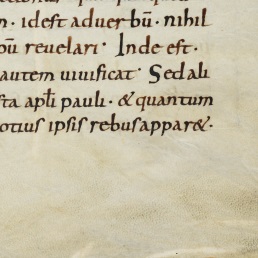 n · idest aduer bū · nihil
bū reuelari · Inde est ·
autem uiuificat · Sed ali
sta apłi pauli · & quantum
otius ipsis rebus appar& ·